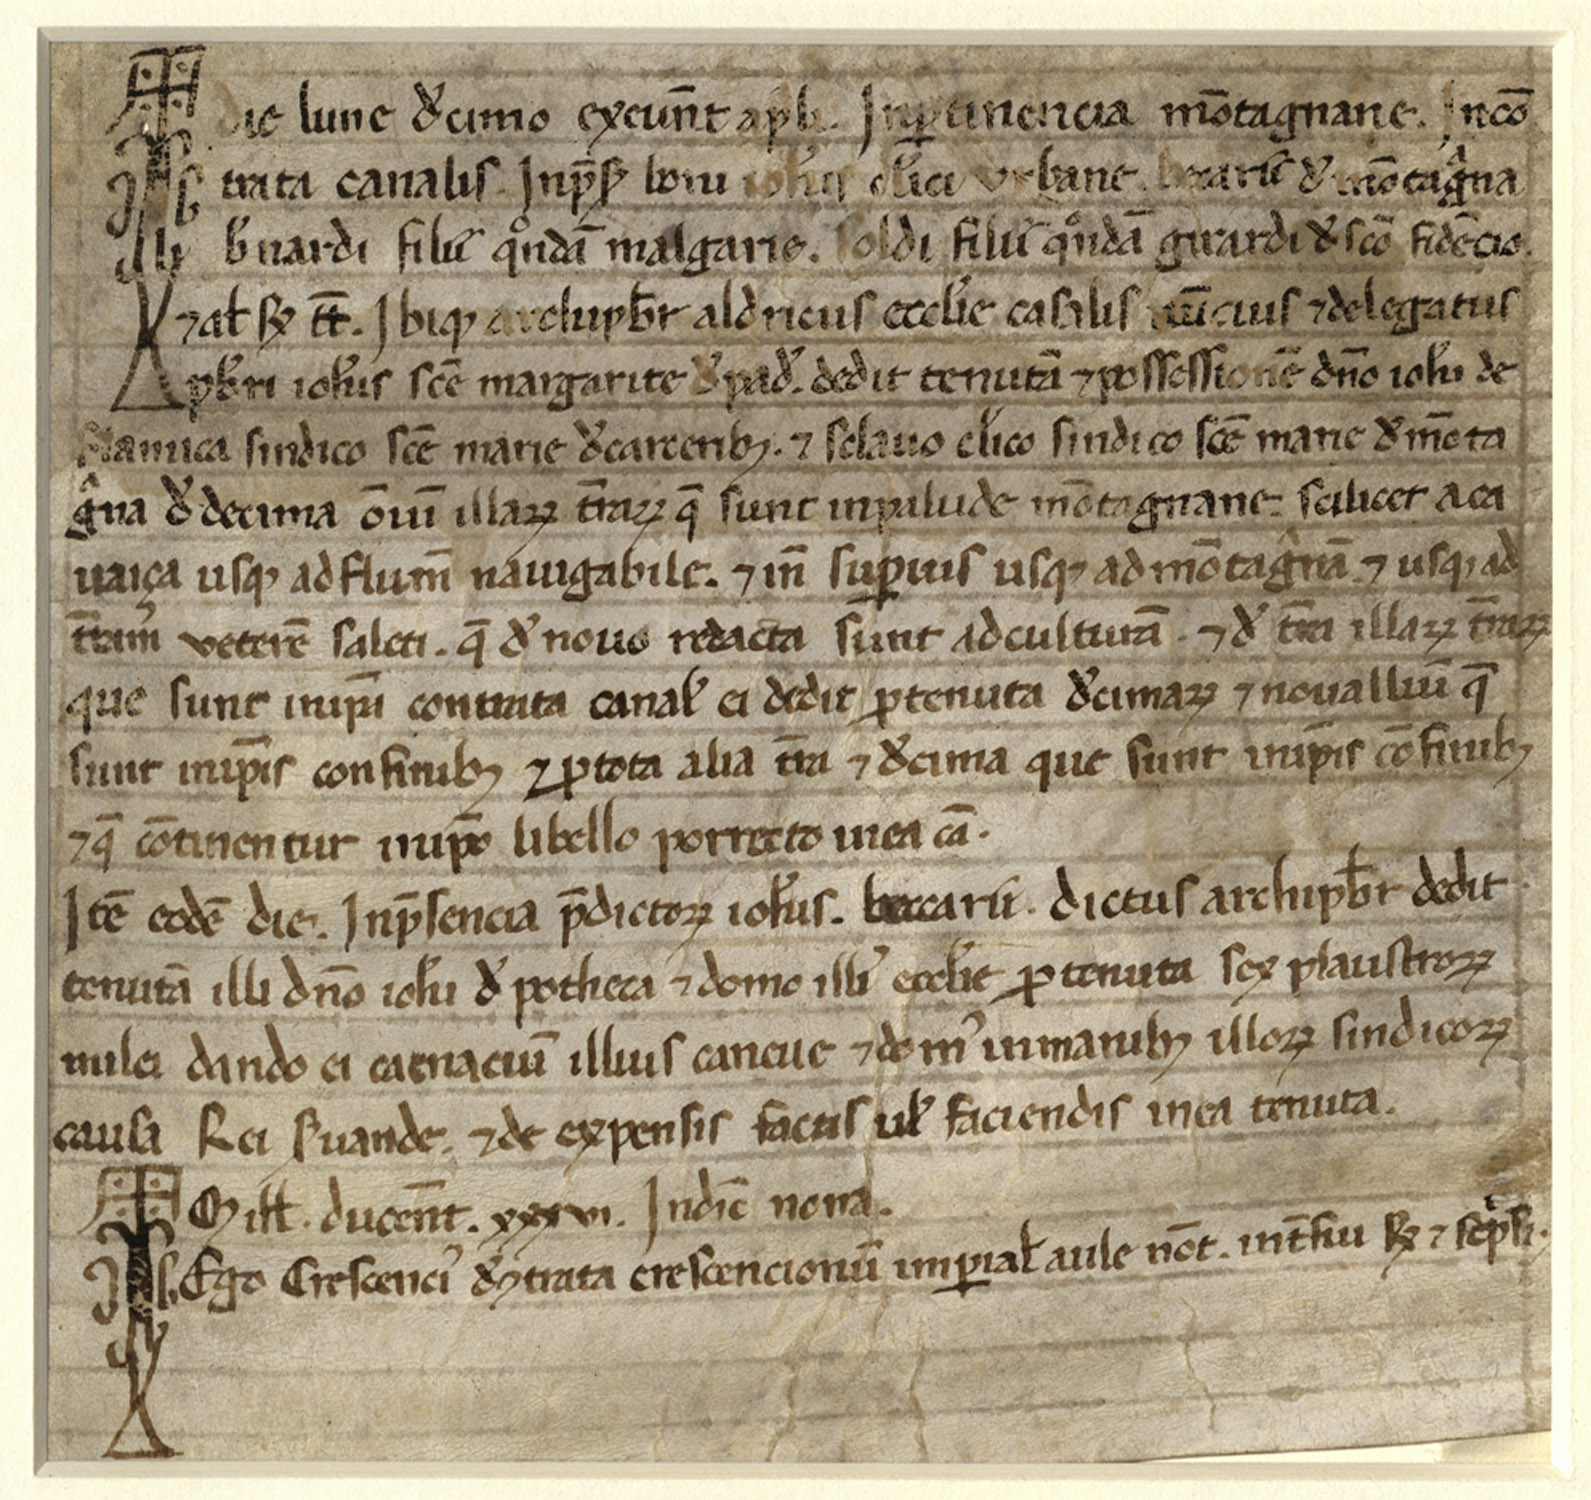 die lune d̓cimo exeu̅nt ap̓l̓. In p̱tinencia mo̅tagnane. In co̅
trata canalis. In p̅s̓ boni ioh̓is cl̓ici urbane. d̓ mo̅tag̓na
b̓nardi filii qo̓nda̅ malgarie. Soldi filii qo̓nda̅ girardi d̓ sco̅ fide̅cio.
⁊ al̓ t̅t̅. Ibiq; archipb̅r aldricus eccl̓ie casalis nu̅cius ⁊ delegatus
pb̓ri ioh̓is sce̅ margarite d̓ pad̓. dedit tenuta̅ ⁊ possessione̅ dn̅o ioh̓i de
sindico sce̅ marie d̓ carcerib; ⁊ sclavo cl̓ico sindico sce̅ marie d̓ mo̅ta
g̓na d̓ decima o̅iu̅ illaꝝ t̅raꝝ q̅ sunt in palude mo̅tagnane. scilicet a ca
vaiça usq; ad flum̅ navigabile. ⁊ in̅ sup̱ius usq; ad mo̅tag̓na̅ ⁊ usq; ad
t̅ram̅ vetere̅ saleti. q̅ d̓ novo redacta sunt ad cultura̅. ⁊ d̓ t̅ra illaꝝ t̅raꝝ
que sunt in ip̅a contrata canal̓ ei dedit p̱ tenuta d̓cimaꝝ ⁊ novalliu̅ q̅
sunt in ip̅is confinib; ⁊ p̱ tota alia t̅ra ⁊ d̓cima que sunt in ip̅is co̅finib;
⁊ q̅ co̅tinentur in ip̅o libello porrecto in ea ca̅.
Ite̅ eode̅ die. In p̅sencia p̅dictoꝝ ioh̓is. beccarii. dictus archipb̅r dedit
tenuta̅ illi dn̅o ioh̓i d̓ potheca ⁊ domo illi̓ eccl̓ie p̱ tenuta sex plaustroꝝ
milei dando ei catnaciu̅ illius caneve ⁊ dom̓ in manib; illoꝝ sindicoꝝ
causa Rei s̓vande. ⁊ de expensis factis ul̓ faciendis in ea tenuta.
Mill̓. ducen̅t. xxxvi. Indic̅ nona.
Ego Crescenci̓ d̓ 9trata crescencionu̅ imp̱ial̓ aule no̅t. int̅fui ⁊ sc̓psi.